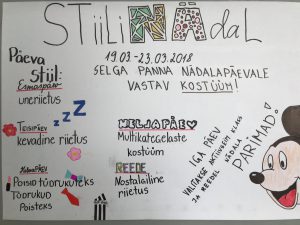 STIILINÄDAL
19.03-23.03.2018
SELGA PANNA NÄDALAPÄEVALE
VASTAV KOSTÜÜM!
Päeva
Stiil:
Esmaspäev
uneriietus
ZZZ
TEISIPÄEV
kevadine riietus
Kolmapäev
Poisid tüdrukuteks
Tüdrukud
Poisteks
NELJAPÄEV
Multikategelaste
kostüüm
REEDE
Nostalgiline
riietus
IGA PÄEV
VALITAKSE AKTIIVSEIM KLASS
JA REEDEL NÄDALA
PARIMAD!